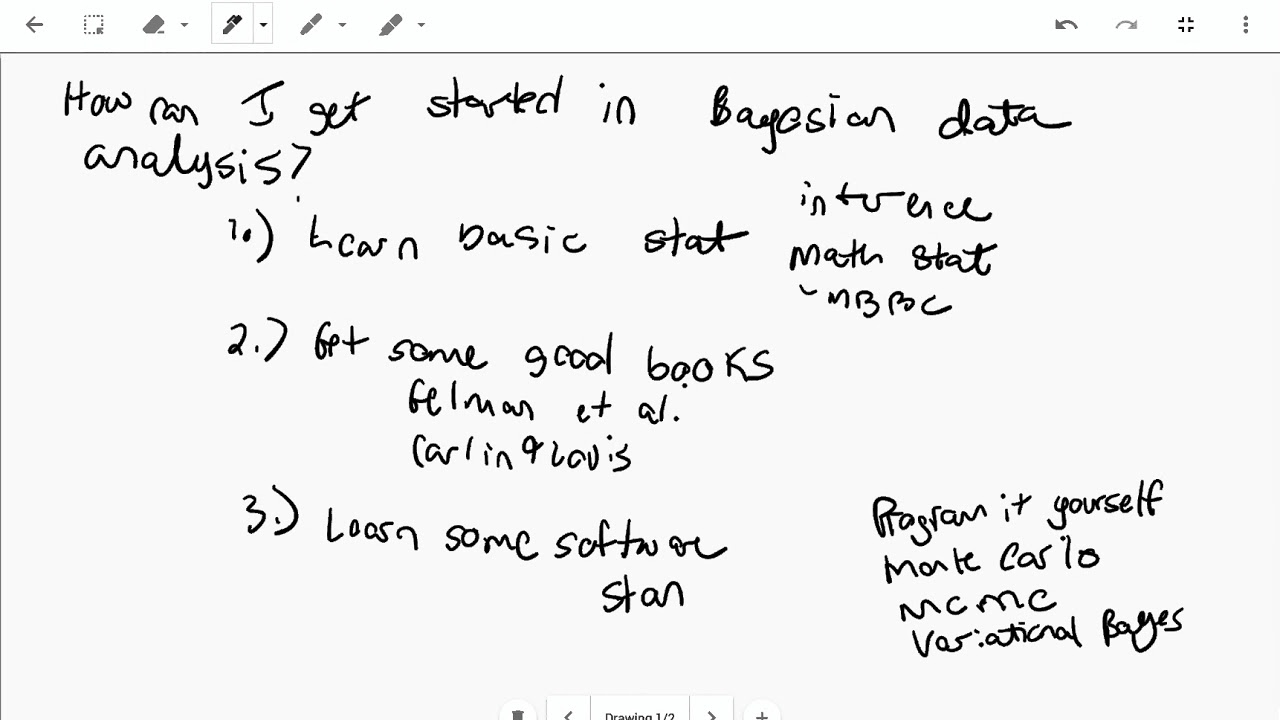 How can I get started in Bayesian data
analysis?
1.) Learn basic stat
inference
Math stat
MBBC
2.) Get some good books
Gelman et al.
Carlin & Louis
3.) Learn some software
Stan
Program it yourself
Monte Carlo
MCMC
Variational Bayes
Drawing 1/2